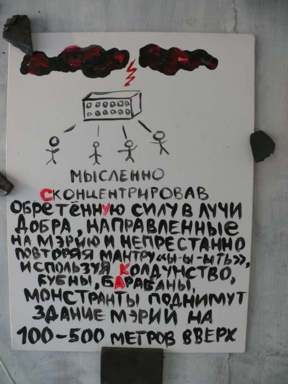 МЫСЛЕННО
СКОНЦЕНТРИРОВАВ
ОБРЕТЁННУЮ СИЛУ В ЛУЧИ
ДОБРА, НАПРАВЛЕННЫЕ
НА МЭРИЮ И НЕПРЕСТАННО
ПОВТОРЯЯ МАНТРУ «Ы-Ы-ЫТЬ»,
ИСПОЛЬЗУЯ КОЛДУНСТВО,
БУБНЫ, БАРАБАНЫ,
МОНСТРАНТЫ ПОДНИМУТ
ЗДАНИЕ МЭРИИ НА
100-500 МЕТРОВ ВВЕРХ